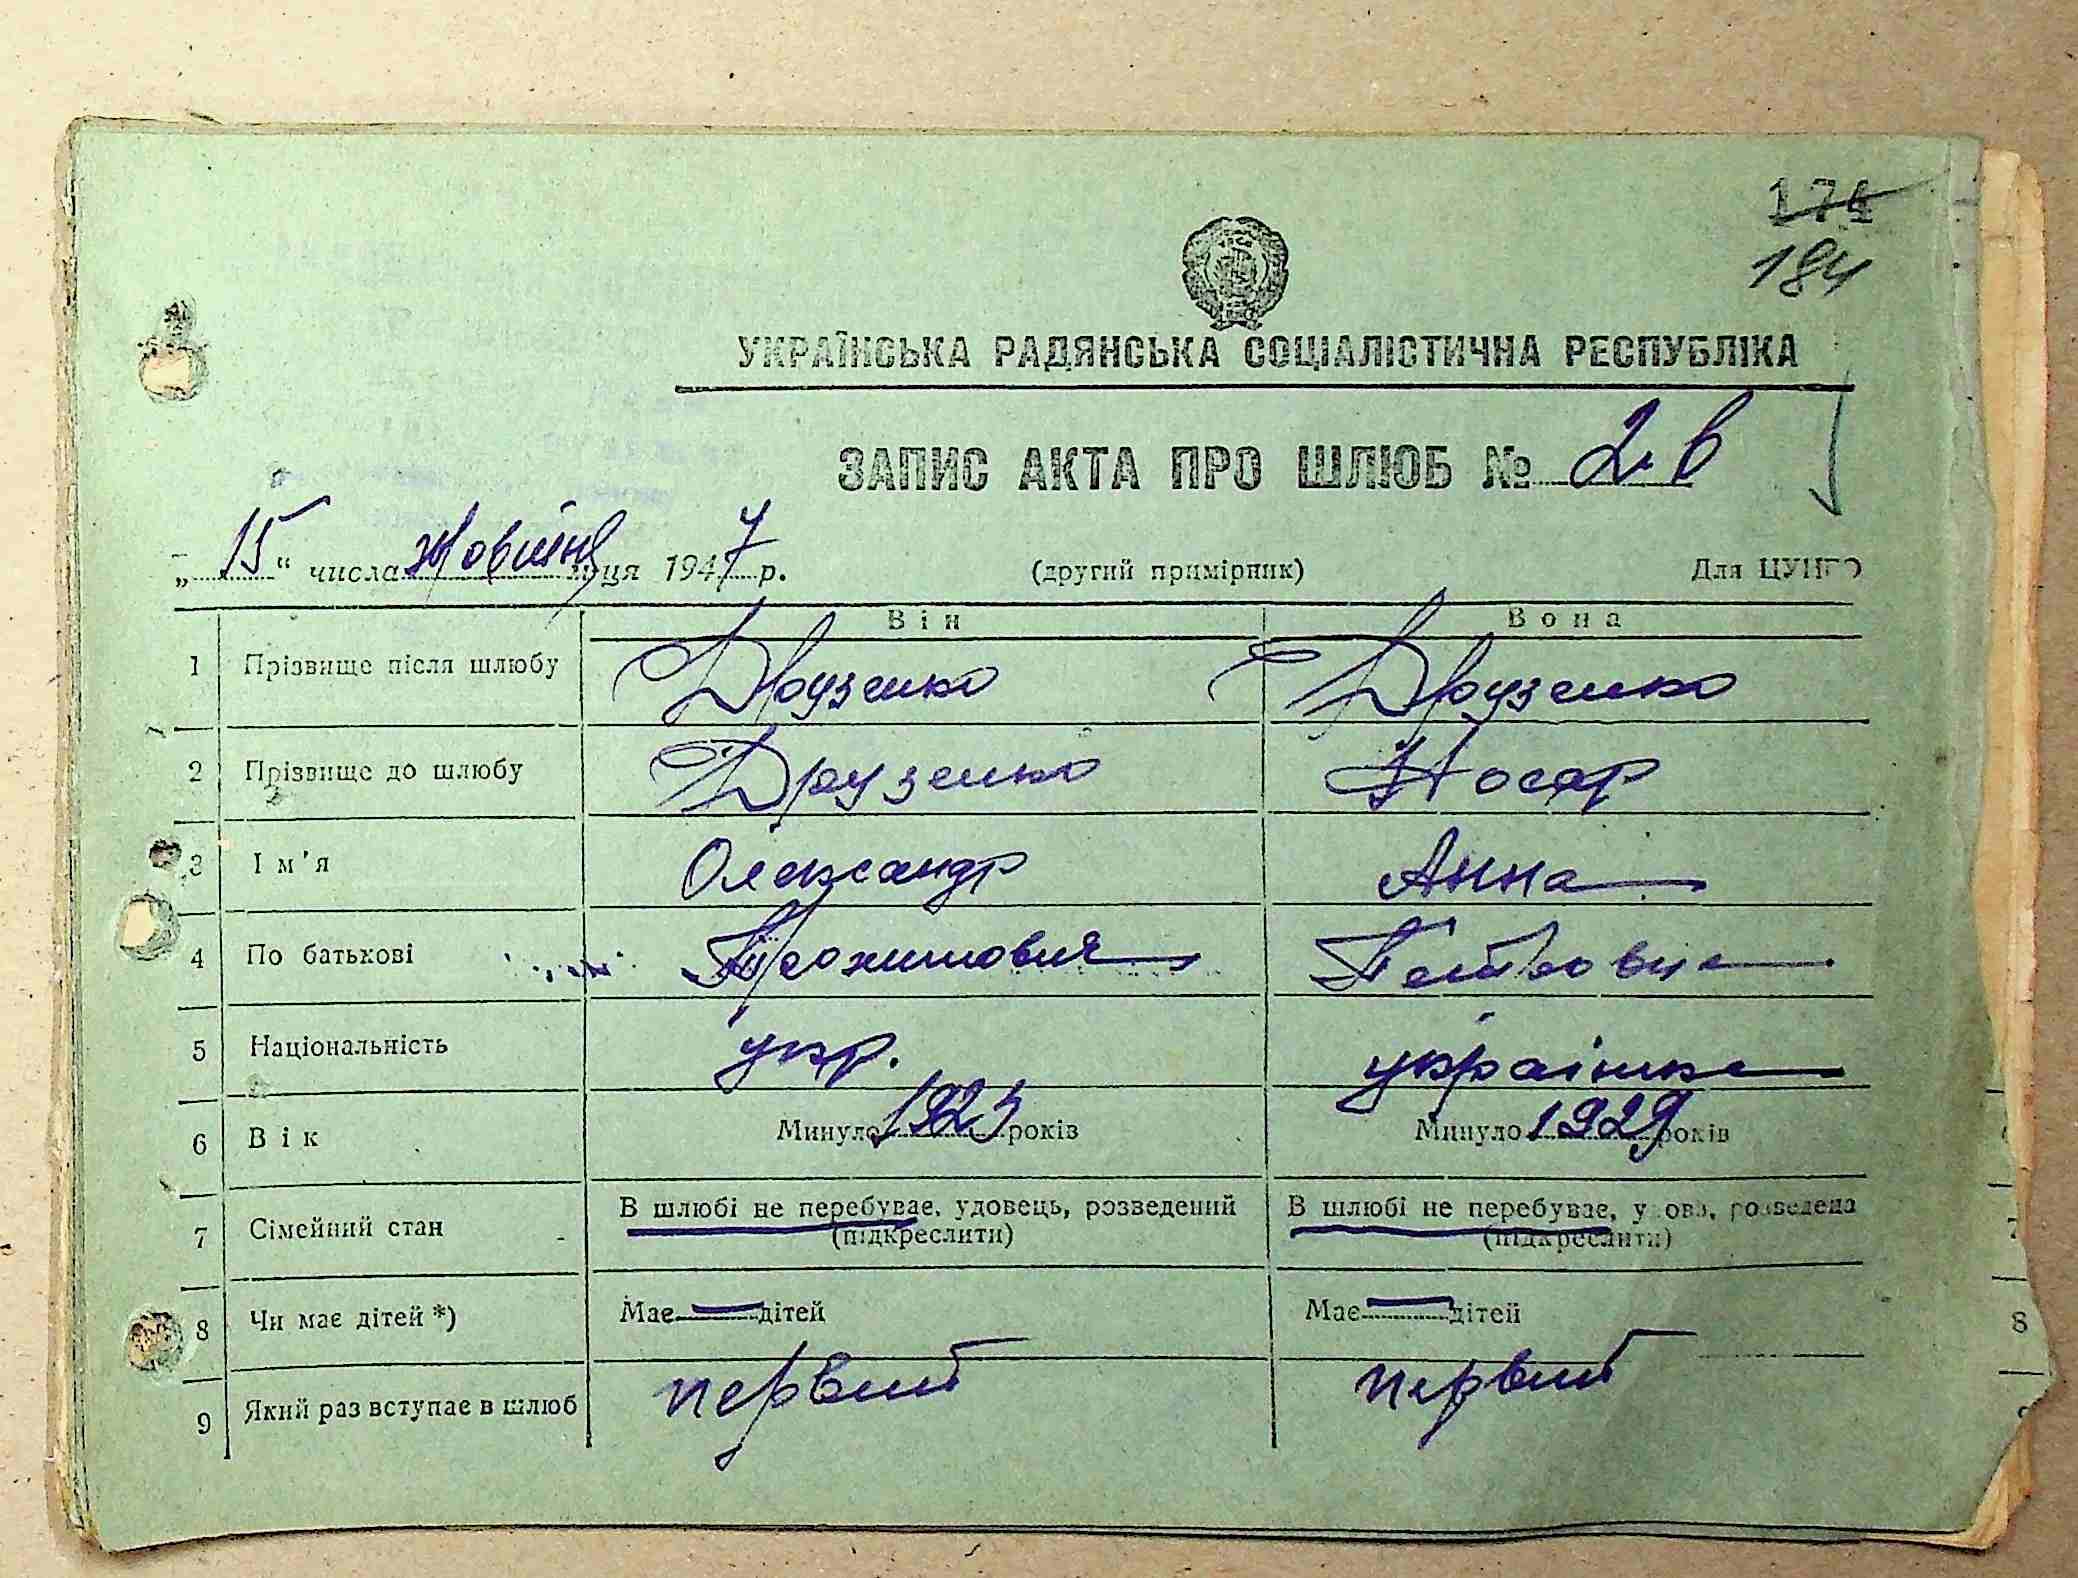 174
184
УКРАЇНСЬКА РАДЯНСЬКА СОЦІАЛІСТИЧНА РЕСПУБЛІКА
ЗАПИС АКТА ПРО ШЛЮБ №
„15“ числа жовтня м-ця 1947 р. (другий примірник) Для ЦУНГО
Він Вона
1 Прізвище після шлюбу Друзенко Друзенко
2 Прізвище до шлюбу Друзенко Носар
3 Ім'я Олександр Анна
4 По батькові Петровна
5 Національність укр. українка
6 Вік Минуло 1923 років Минуло 1929 років
7 Сімейний стан В шлюбі не перебуває, удовець, розведений В шлюбі не перебуває, удова, розведена
(підкреслити) (підкреслити)
8 Чи має дітей *) Має — дітей Має — дітей
9 Який раз вступає в шлюб первий первий
7
8